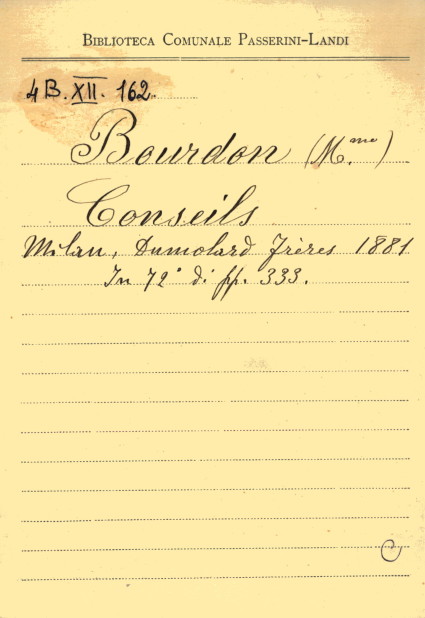 BIBLIOTECA COMUNALE PASSERINI-LANDI
4B. XII. 162.
Bourdon (M.me)
Conseils
Milan, Dumolard Frères 1881
In 72° di pp. 333.
C